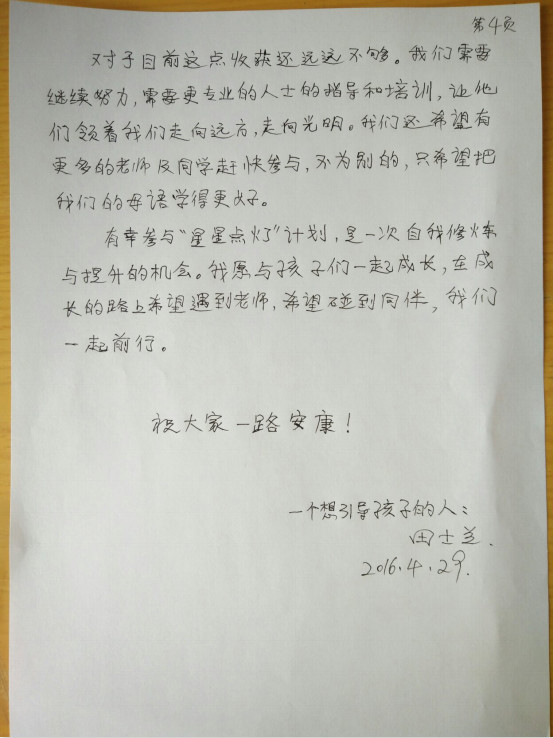 第4页
对于目前这点收获还远远不够。我们需要
继续努力,需要更专业的人士的指导和培训,让他
们领着我们走向远方,走向光明。我们还希望有
更多的老师及同学赶快参与,不为别的,只希望把
我们的母语学得更好。
有幸参与“星星点灯”计划,是一次自我修炼
与提升的机会。我愿与孩子们一起成长,在成
长的路上希望遇到老师,希望碰到同伴,我们
一起前行。
祝大家一路安康!
一个想引导孩子的人:
田士兰.
2016.4.29.